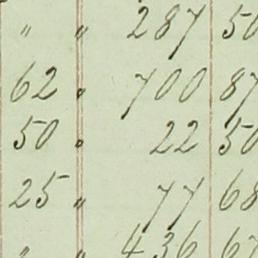 " " 287 50
62 " 700 87
50 " 22 50
25 " 77 68
" " 436 67